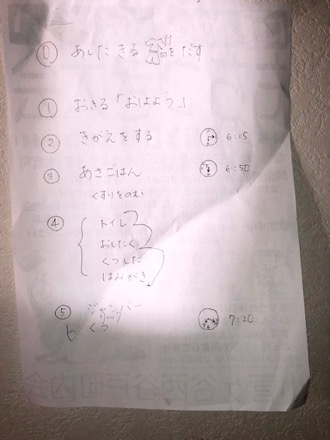 ⓪ あした きる ふくをだす
① おきる「おはよう」
② きがえをする 6:15
③ あさごはん 6:50
くすりをのむ
④ トイレ
おしたく
くつした
はみがき
⑤ ジャンバー
くつ 7:20